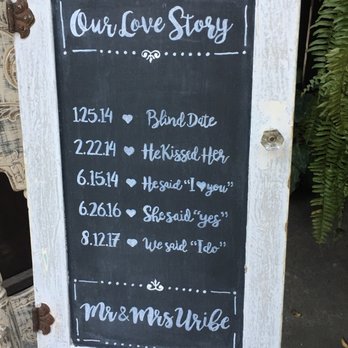 Our Love Story
1.25.14 ♥ Blind Date
2.22.14 ♥ He Kissed Her
6.15.14 ♥ He said "I ♥ you"
6.26.16 ♥ She said "yes"
8.12.17 ♥ We said "I do"
Mr & Mrs Uribe